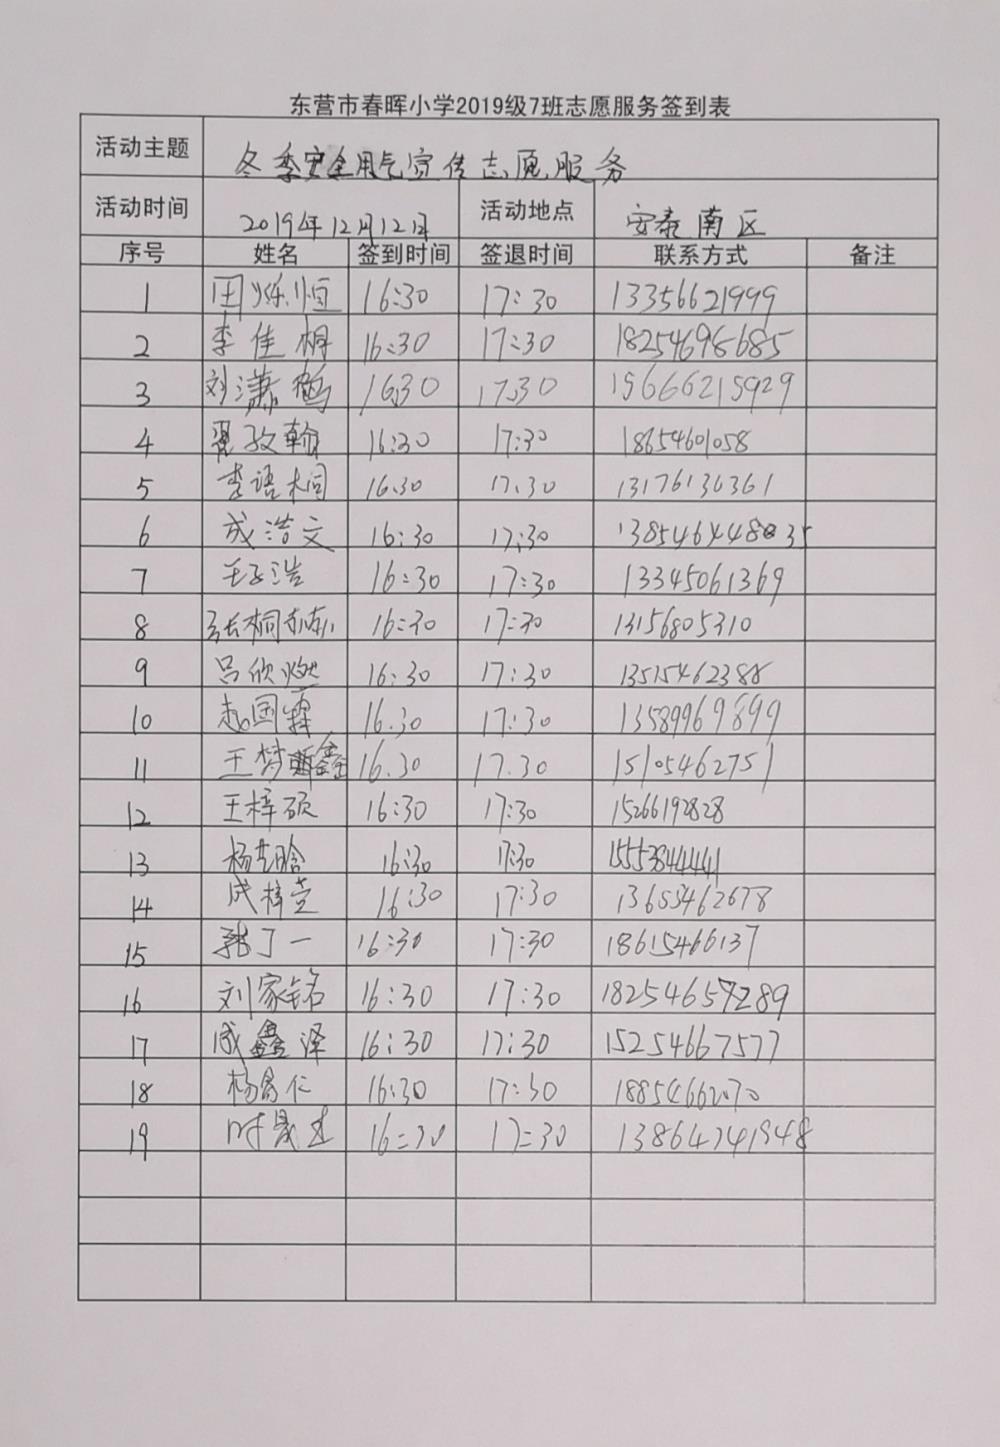 东营市春晖小学2019级7班志愿服务签到表
活动主题 冬季安全用气宣传志愿服务
活动时间 2019年12月12日 活动地点 安泰南区
序号 姓名 签到时间 签退时间 联系方式 备注
1 田烁恒 16:30 17:30 13356621999
2 李佳桐 16:30 17:30 18254698685
3 刘潇鹤 16:30 17:30 15666215929
4 翟孜翰 16:30 17:30 18654601058
5 李语桐 16.30 17.30 13176136361
6 成浩文 16:30 17:30
7 王子浩 16:30 17:30 13345061369
8 张桐赫 16:30 17:30 13156805310
9 吕欣燃 16:30 17:30 13515462388
10 赵国霖 16.30 17:30 13589969899
11 王梦鑫 16.30 17.30 15105462751
12 王梓硕 16:30 17:30 15266192828
13 杨 晗 16:30 17:30
14 成梓萱 16:30 17:30 13655462678
15 丁一 16:30 17:30 18615466137
16 刘家铭 16:30 17:30
17 成鑫泽 16:30 17:30 15254667577
18 杨 仁 16:30 17:30 18854662070
19 时 16:30 17:30 13864741948